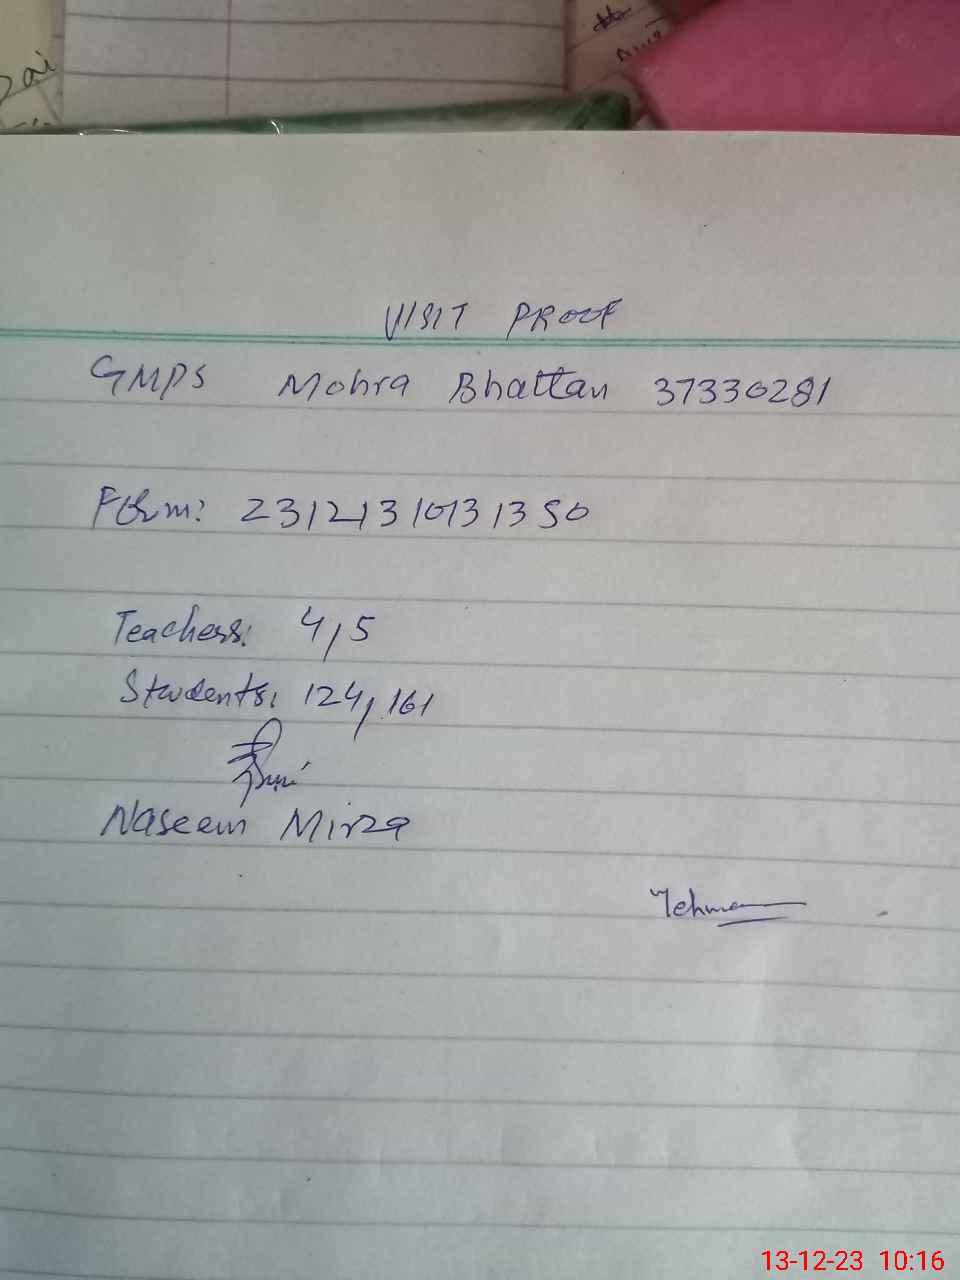 ai
VISIT PROOF
GMPS Mohra Bhattan 37330281
Form: 23121310131350
Teachers: 4/5
Students: 124, 161
Naseem Mirza
13-12-23 10:16